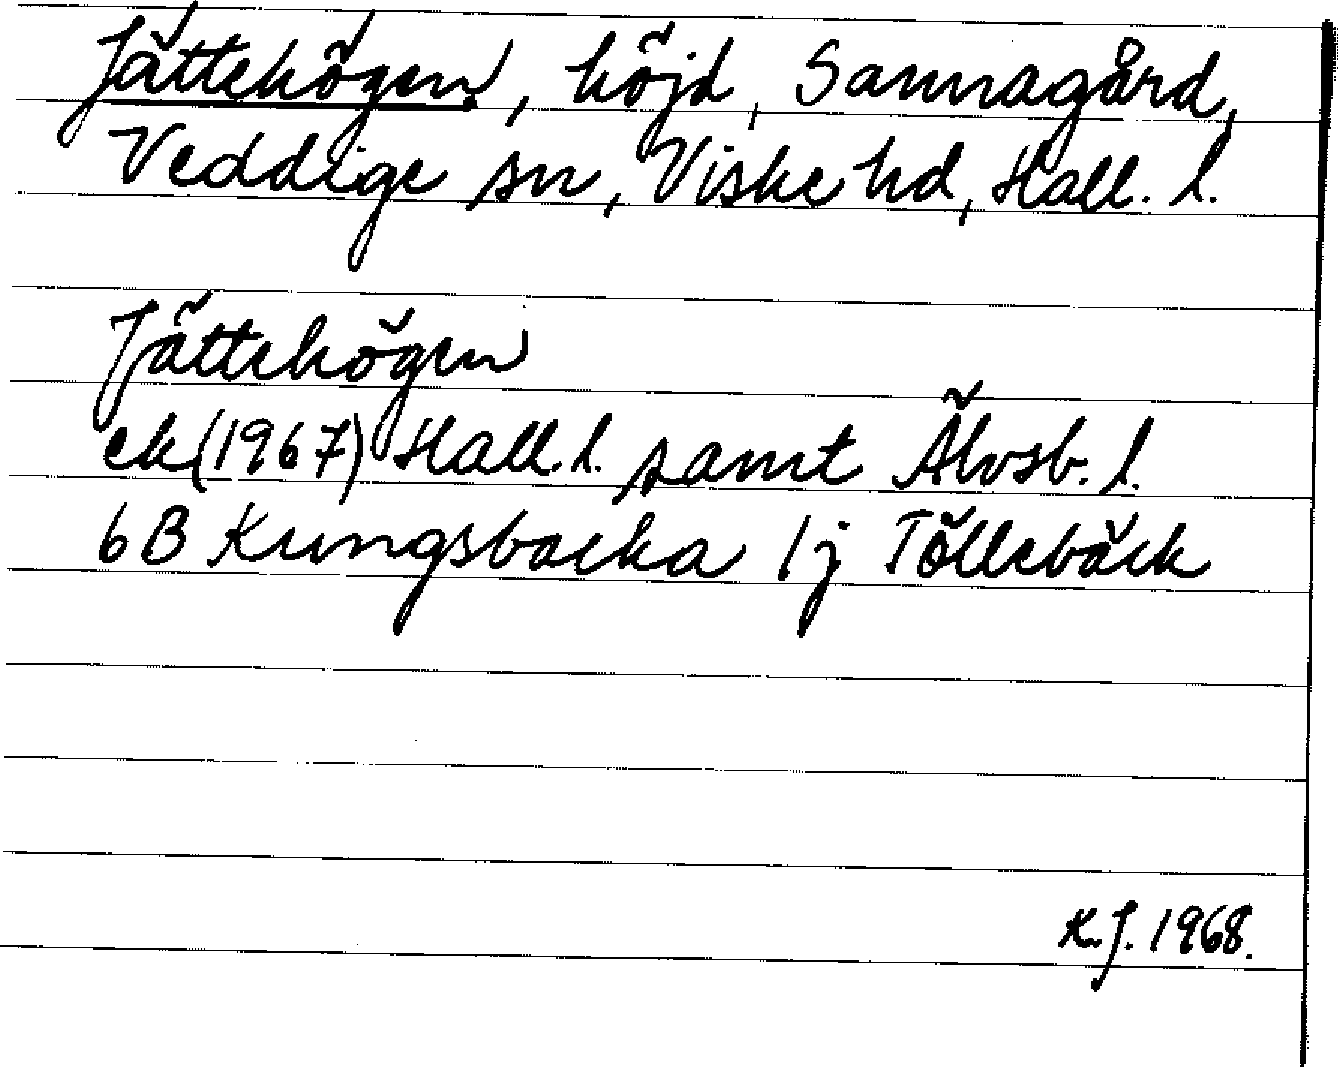 Jättehögen, höjd, Sannagård,
Veddige sn, Viske hd, Hall. l.
Jättehögen
ek (1967) Hall. l. samt Älvsb. l.
6B Kungsbacka 1j Töllebäck
K.J. 1968.